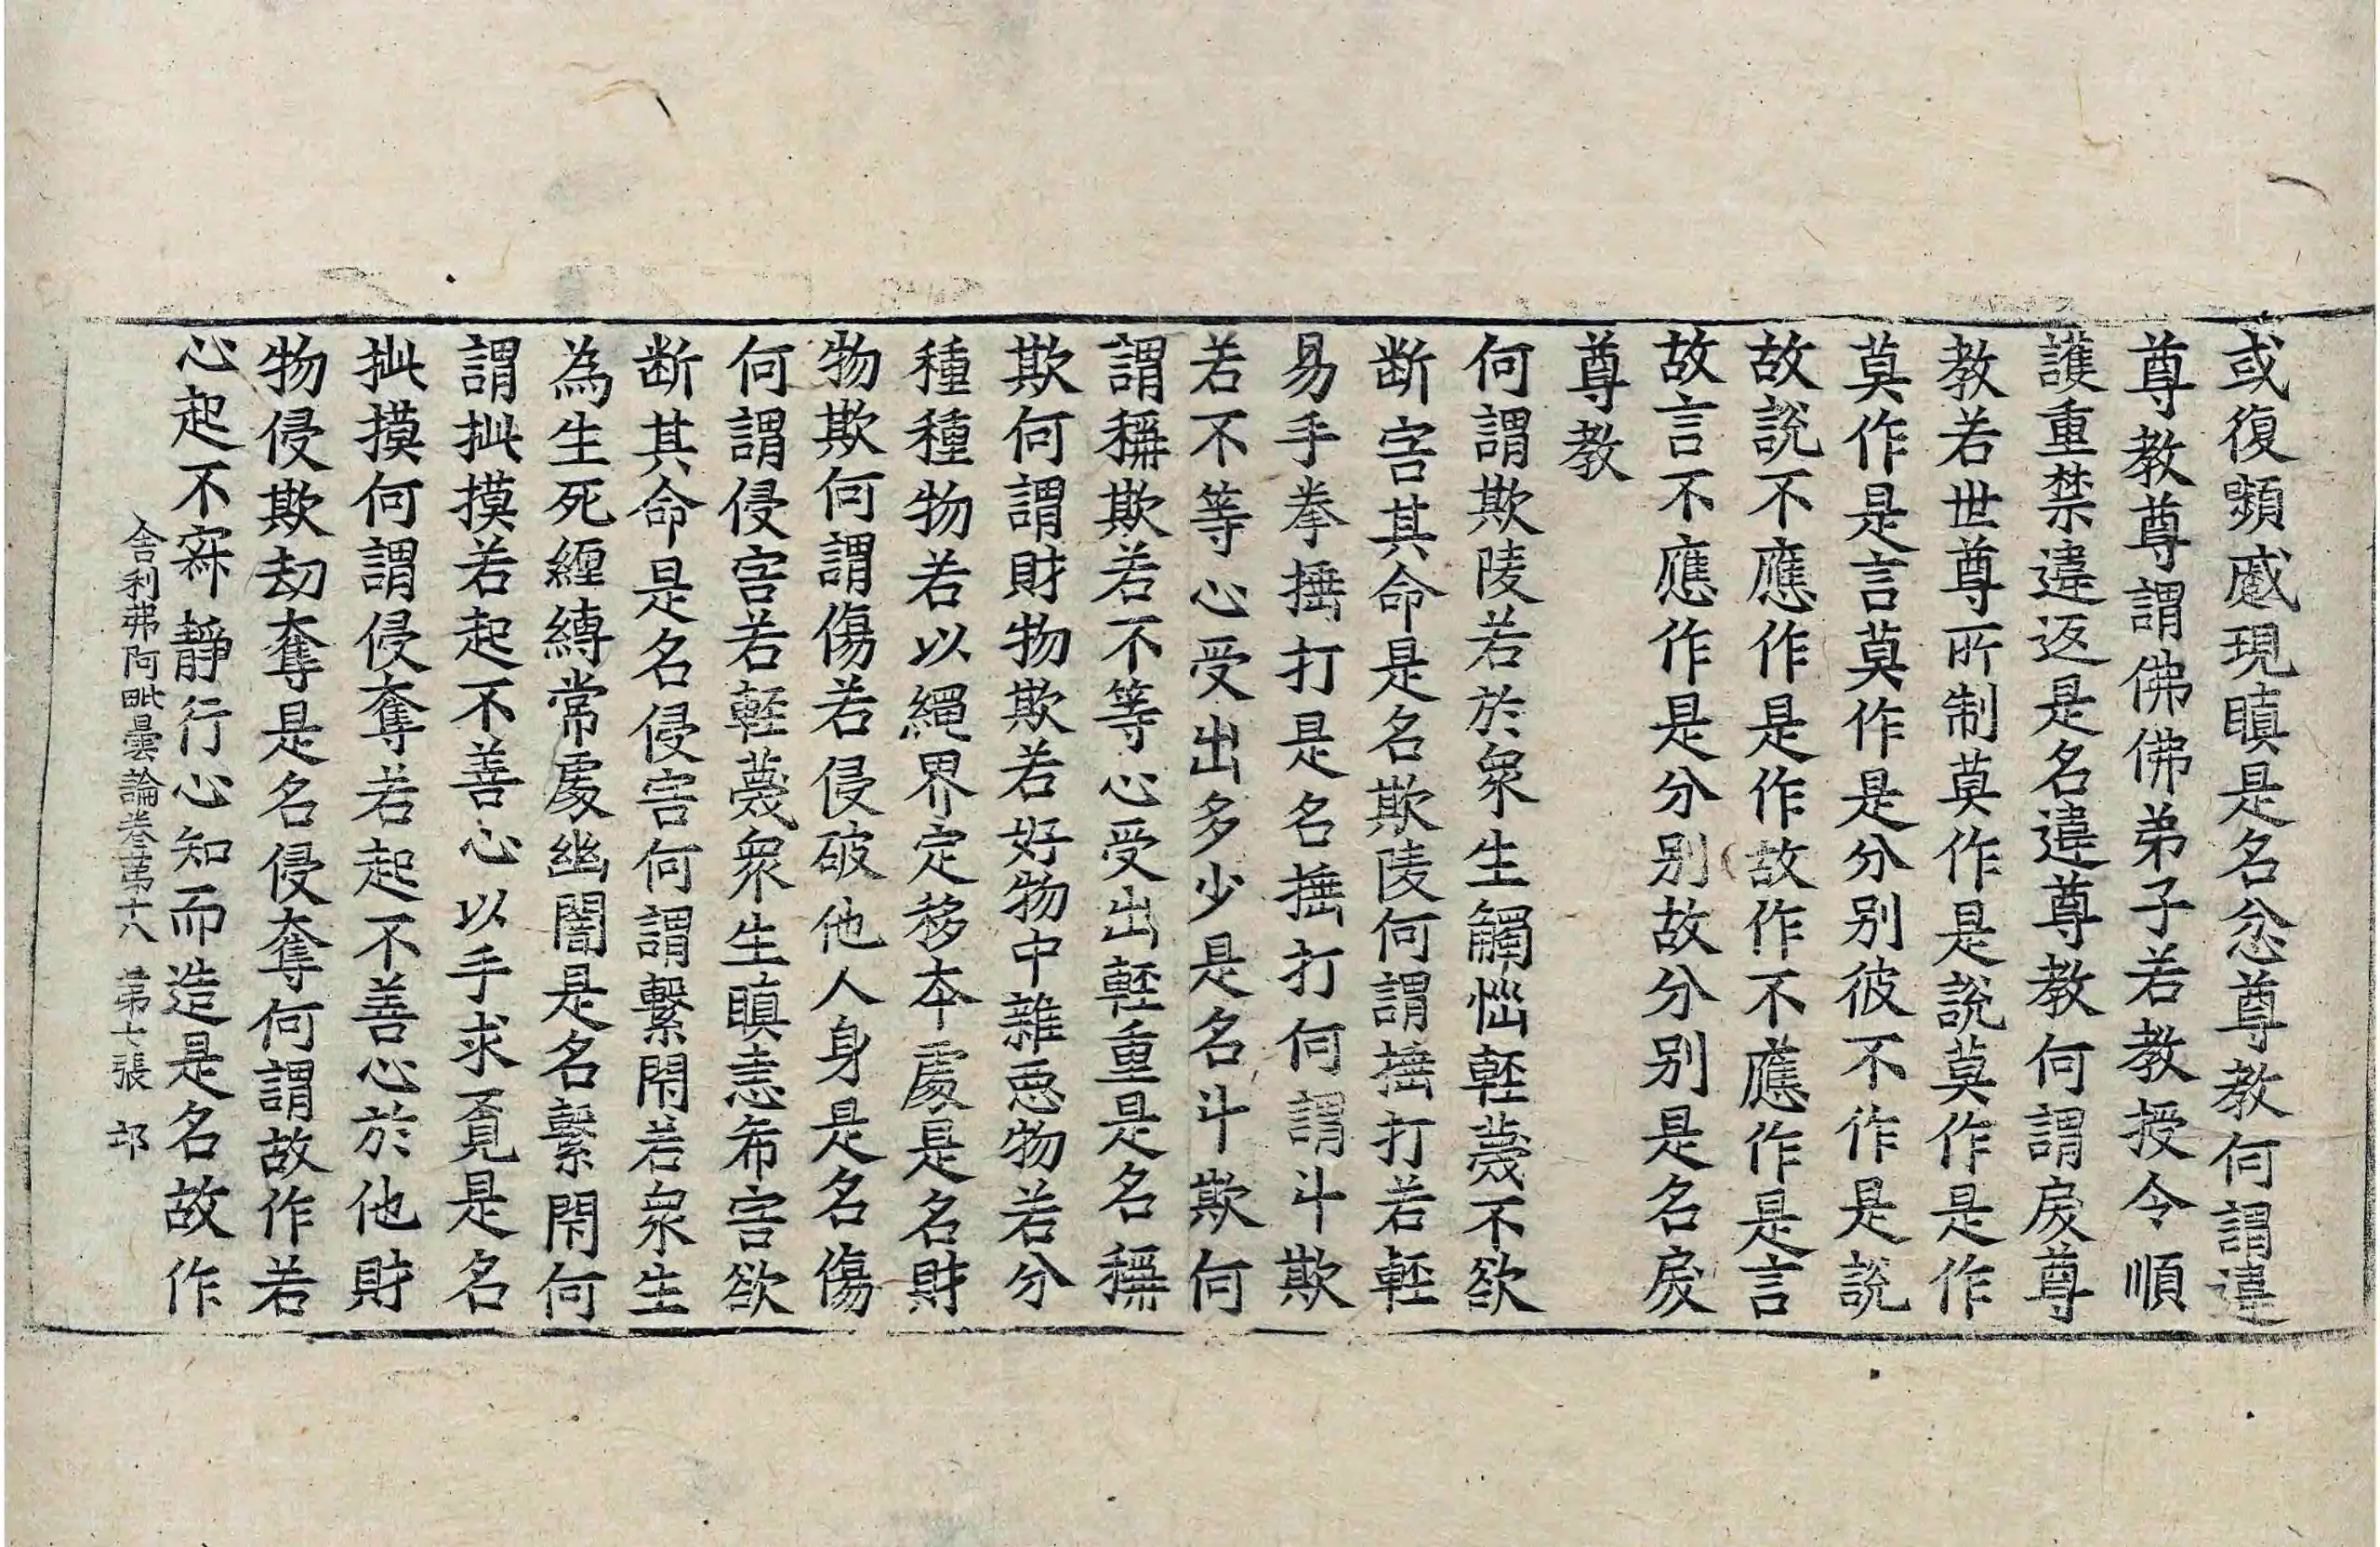 或復嚬慼現瞋是名忿尊教何謂違
尊教尊謂佛佛弟子若教授令順
護重禁違返是名違尊教何謂戾尊
教若世尊所制莫作是說莫作是作
莫作是言莫作是分別彼不作是說
故說不應作是作故作不應作是言
故言不應作是分別故分別是名戾
尊教
何謂欺陵若於衆生觸惱輕薎不欲
斷害其命是名欺陵何謂捶打若輕
易手拳捶打是名捶打何謂斗欺
若不等心受出多少是名斗欺何
謂稱欺若不等心受出輕重是名稱
欺何謂財物欺若好物中雜惡物若分
種種物若以繩界定移本處是名財
物欺何謂傷若侵破他人身是名傷
何謂侵害若輕薎衆生瞋恚希害欲
斷其命是名侵害何謂繫閇若衆生
為生死纏縛常處幽闇是名繫閇何
謂抋摸若起不善心以手求覓是名
抋摸何謂侵奪若起不善心於他財
物侵欺劫奪是名侵奪何謂故作若
心起不寂靜行心知而造是名故作
舍利弗阿毗曇論卷第十八 第七張 邙